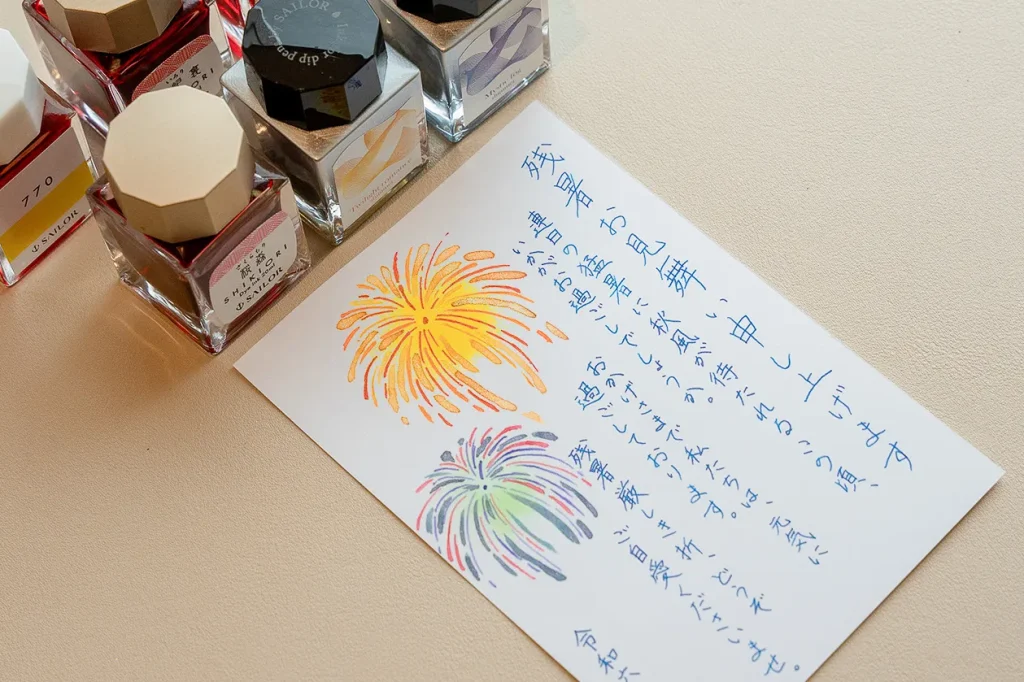 SAILOR
dip pen
770
SAILOR
桜森
SHIKIORI
SAILOR
残暑お見舞い申し上げます
連日の猛暑に秋風が待たれるこの頃、
いかがお過ごしでしょうか。
おかげさまで私たちは、元気に
過ごしております。
残暑厳しき折、どうぞ
ご自愛くださいませ。
令和六